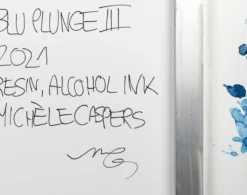 BLU PLUNGE III
2021
RESIN, ALCOHOL INK
MICHÈLE CASPERS